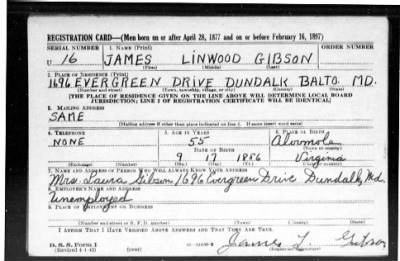 REGISTRATION CARD—(Men born on or after April 28, 1877 and on or before February 16, 1897)
SERIAL NUMBER 1. NAME (Print) ORDER NUMBER
U 16 JAMES LINWOOD GIBSON
(First) (Middle) (Last)
2. PLACE OF RESIDENCE (Print)
1696 EVERGREEN DRIVE DUNDALK BALTO. MD.
(Number and street) (Town, township, village, or city) (County) (State)
[THE PLACE OF RESIDENCE GIVEN ON THE LINE ABOVE WILL DETERMINE LOCAL BOARD
JURISDICTION; LINE 2 OF REGISTRATION CERTIFICATE WILL BE IDENTICAL]
3. MAILING ADDRESS
SAME
[Mailing address if other than place indicated on line 2. If same insert word same]
4. TELEPHONE 5. AGE IN YEARS 6. PLACE OF BIRTH
NONE 55
DATE OF BIRTH (Town or county)
9 17 1886 Virginia
(Exchange) (Number) (Mo.) (Day) (Yr.) (State or country)
7. NAME AND ADDRESS OF PERSON WHO WILL ALWAYS KNOW YOUR ADDRESS
Mrs. Laura Gibson 1696 Evergreen Drive Dundalk, Md.
8. EMPLOYER'S NAME AND ADDRESS
Unemployed
9. PLACE OF EMPLOYMENT OR BUSINESS
(Number and street or R. F. D. number) (Town) (County) (State)
I AFFIRM THAT I HAVE VERIFIED ABOVE ANSWERS AND THAT THEY ARE TRUE.
D. S. S. Form 1
(Revised 4-1-42) (over) James L. Gibson